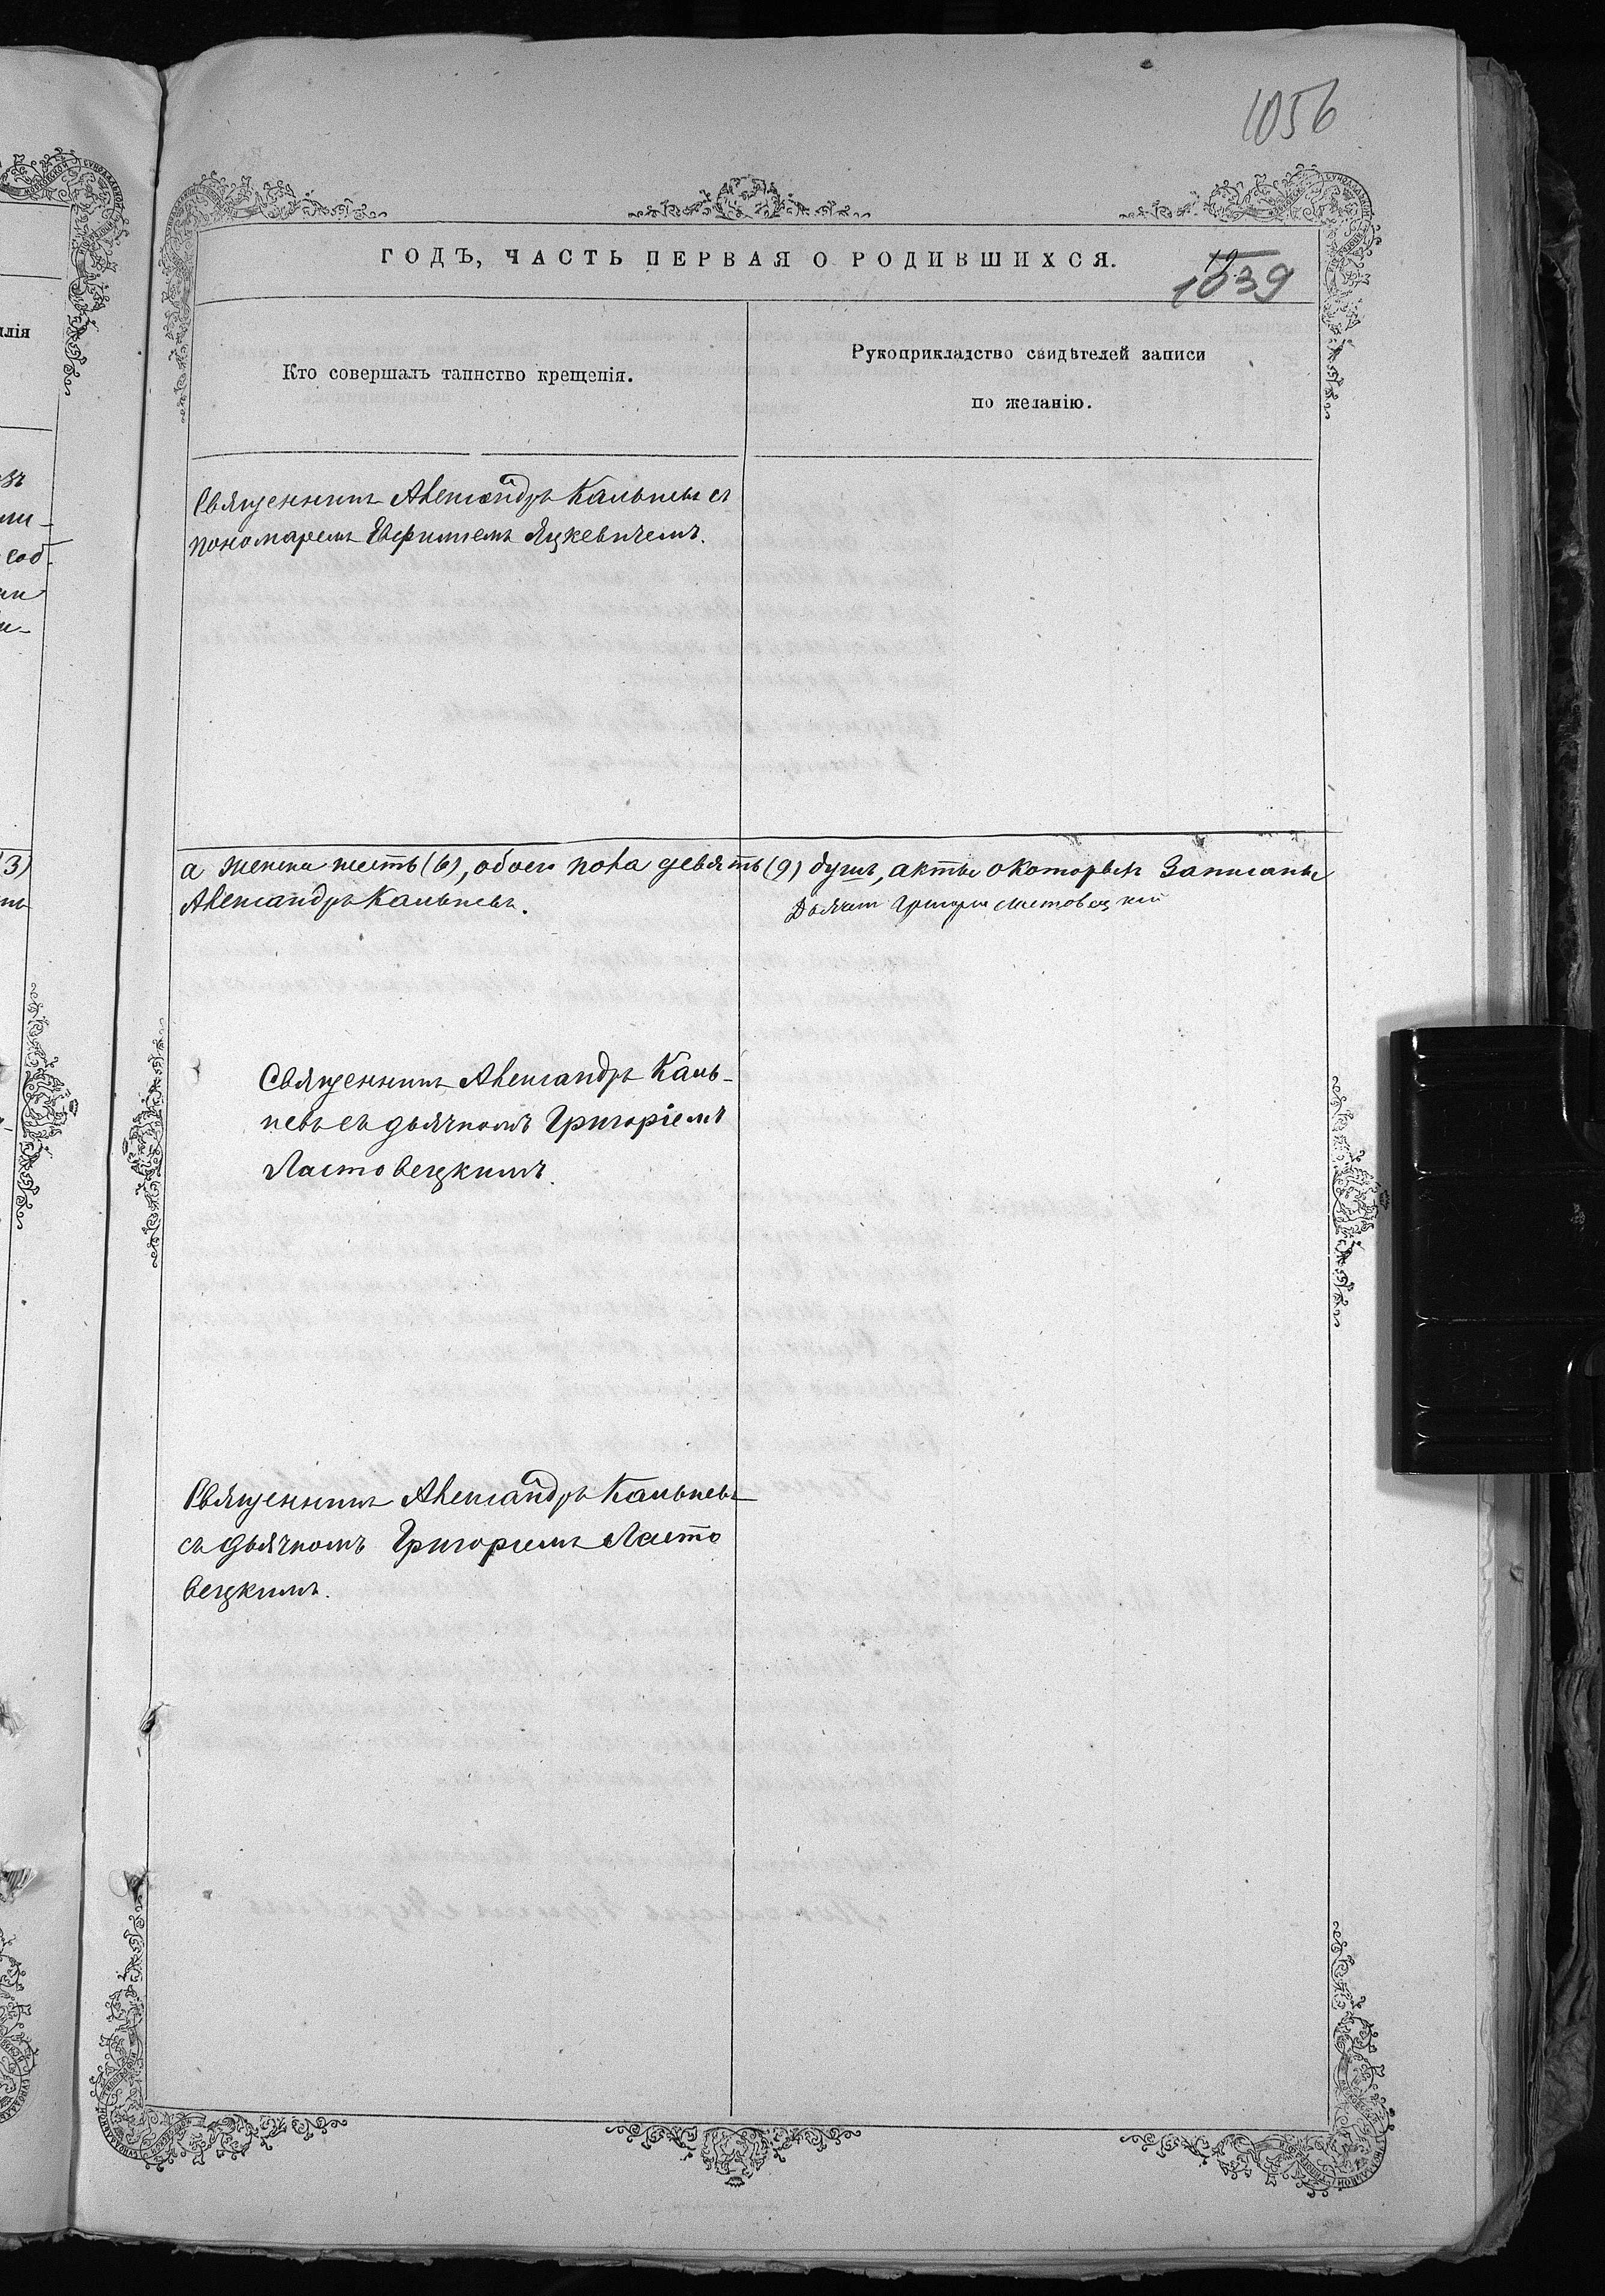 1056
ГОДЪ, ЧАСТЬ ПЕРВАЯ О РОДИВШИХСЯ.
1039
Кто совершалъ таинство крещенія.
Рукоприкладство свидѣтелей записи
по желанію.
Священникъ Александръ Кальневъ съ
пономаремъ Евфиміемъ Яцкевичемъ.
а женска шесть (6), обоего пола девять (9) душъ, акты о которыхъ записаны
Александръ Кальневъ.
Дьячекъ Григорій Ластовецкій
Священникъ Александръ Каль-
невъ съ дьячкомъ Григоріемъ
Ластовецкимъ.
Священникъ Александръ Кальневъ
съ дьячкомъ Григоріемъ Ласто
вецкимъ.